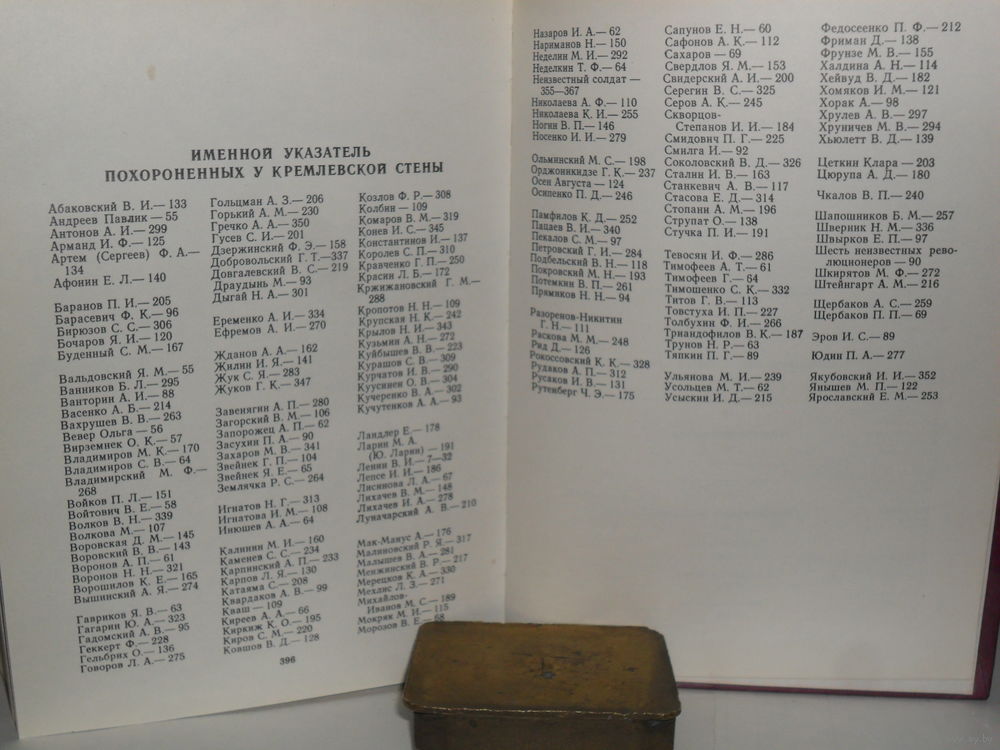 ИМЕННОЙ УКАЗАТЕЛЬ
ПОХОРОНЕННЫХ У КРЕМЛЕВСКОЙ СТЕНЫ
Абаковский В. И.— 133
Андреев Павлик — 55
Антонов А. И.— 299
Арманд И. Ф.— 125
Артем (Сергеев) Ф. А.—
134
Афонин Е. Л.— 140
Баранов П. И.— 205
Барасевич Ф. К.— 96
Бирюзов С. С.— 306
Бочаров Я. И.— 120
Буденный С. М.— 167
Вальдовский Я. М.— 55
Ванников Б. Л.— 295
Ванторин А. И.— 88
Васенко А. Б.— 214
Вахрушев В. В.— 263
Вевер Ольга — 56
Вирземнек О. К.— 57
Владимиров М. К.— 170
Владимиров С. В.— 64
Владимирский М. Ф.—
268
Войков П. Л.— 151
Войтович В. Е.— 58
Волков В. Н.— 339
Волкова М.— 107
Воровская Д. М.— 145
Воровский В. В.— 143
Воронов А. П.— 61
Воронов Н. Н.— 321
Ворошилов К. Е.— 165
Вышинский А. Я.— 274
Гавриков Я. В.— 63
Гагарин Ю. А.— 323
Гадомский А. В.— 95
Геккерт Ф.— 228
Гельбрих О.— 136
Говоров Л. А.— 275
Гольцман А. З.— 206
Горький А. М.— 230
Гречко А. А.— 350
Гусев С. И.— 201
Дзержинский Ф. Э.— 158
Добровольский Г. Т.— 337
Довгалевский В. С.— 219
Драудынь М.— 93
Дыгай Н. А.— 301
Еременко А. И.— 334
Ефремов А. И.— 270
Жданов А. А.— 162
Жилин И. Я.— 141
Жук С. Я.— 283
Жуков Г. К.— 347
Завенягин А. П.— 280
Загорский В. М.— 106
Запорожец А. П.— 62
Засухин П. А.— 90
Захаров М. В.— 341
Звейнек Г. П.— 104
Звейнек Я. Е.— 65
Землячка Р. С.— 264
Игнатов Н. Г.— 313
Игнатова И. М.— 108
Инюшев А. А.— 64
Калинин М. И.— 160
Каменев С. С.— 234
Карпинский А. П.— 233
Карпов Л. Я.— 130
Катаяма С.— 208
Квардаков А. В.— 99
Кваш — 109
Киреев А. А.— 66
Киркиж К. О.— 195
Киров С. М.— 220
Ковшов В. Д.— 128
Козлов Ф. Р.— 308
Колбин — 109
Комаров В. М.— 319
Конев И. С.— 345
Константинов И.— 137
Королев С. П.— 310
Кравченко Г. П.— 250
Красин Л. Б.— 172
Кржижановский Г. М.—
288
Кропотов Н. Н.— 109
Крупская Н. К.— 242
Крылов Н. И.— 343
Кузьмин А. Н.— 272
Куйбышев В. В.— 223
Курашов С. В.— 309
Курчатов И. В.— 290
Куусинен О. В.— 304
Кучеренко В. А.— 302
Кучутенков А. А.— 93
Ландлер Е.— 178
Ларин М. А.
(Ю. Ларин) — 191
Ленин В. И.— 7—32
Лепсе И. И.— 186
Лисинова Л. А.— 67
Лихачев В. М.— 148
Лихачев И. А.— 278
Луначарский А. В.— 210
Мак-Манус А.— 176
Малиновский Р. Я.— 317
Малышев В. А.— 281
Менжинский В. Р.— 217
Мерецков К. А.— 330
Мехлис Л. З.— 271
Михайлов-
Иванов М. С.— 189
Мокряк М. И.— 115
Морозов В. Е.— 68
396
Назаров И. А.— 62
Нариманов Н.— 150
Неделин М. И.— 292
Неделкин Т. Ф.— 64
Неизвестный солдат —
355—367
Николаева А. Ф.— 110
Николаева К. И.— 255
Ногин В. П.— 146
Носенко И. И.— 279
Ольминский М. С.— 198
Орджоникидзе Г. К.— 237
Осен Августа — 124
Осипенко П. Д.— 246
Памфилов К. Д.— 252
Пацаев В. И.— 340
Пекалов С. М.— 97
Петровский Г. И.— 284
Подбельский В. Н.— 118
Покровский М. Н.— 193
Потемкин В. П.— 261
Прямиков Н. Н.— 94
Разоренов-Никитин
Г. Н.— 111
Раскова М. М.— 248
Рид Д.— 126
Рокоссовский К. К.— 328
Рудаков А. П.— 312
Русаков И. В.— 131
Рутенберг Ч. Э.— 175
Сапунов Е. Н.— 60
Сафонов А. К.— 112
Сахаров — 69
Свердлов Я. М.— 153
Свидерский А. И.— 200
Серегин В. С.— 325
Серов А. К.— 245
Скворцов-
Степанов И. И.— 184
Смидович П. Г.— 225
Смилга И.— 92
Соколовский В. Д.— 326
Сталин И. В.— 163
Станкевич А. В.— 117
Стасова Е. Д.— 314
Стопани А. М.— 196
Струпат О.— 138
Стучка П. И.— 191
Тевосян И. Ф.— 286
Тимофеев А. Т.— 61
Тимофеев Г.— 64
Тимошенко С. К.— 332
Титов Г. В.— 113
Товстуха И. П.— 227
Толбухин Ф. И.— 266
Триандофиллов В. К.— 187
Трунов Н. Р.— 63
Тяпкин П. Г.— 89
Ульянова М. И.— 239
Усольцев М. Т.— 62
Усыскин И. Д.— 215
Федосеенко П. Ф.— 212
Фриман Д.— 138
Фрунзе М. В.— 155
Халдина А. Н.— 114
Хейвуд В. Д.— 182
Хомяков И. М.— 121
Хорак А.— 98
Хрулев А. В.— 297
Хруничев М. В.— 294
Хьюлетт В. Д.— 139
Цеткин Клара — 203
Цюрупа А. Д.— 180
Чкалов В. П.— 240
Шапошников Б. М.— 257
Шверник Н. М.— 336
Швырков Е. П.— 97
Шесть неизвестных рево-
люционеров — 90
Шкирятов М. Ф.— 272
Штейнгарт А. М.— 216
Щербаков А. С.— 259
Щербаков П. П.— 69
Эров И. С.— 89
Юдин П. А.— 277
Якубовский И. И.— 352
Янышев М. П.— 122
Ярославский Е. М.— 253